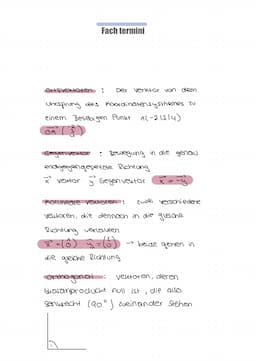 Fachtermini
Ortsvektoren : Der Vektor von dem
Ursprung des Koordinatensystems zu
einem beliebigen Punkt A(-2|3|4)
Gegenvektor : Bewegung in die genau
entgegengesetzte Richtung
x⃗ Vektor y⃗ Gegenvektor x⃗ = -y⃗
Kollineare Vektoren : zwei verschiedene
Vektoren, die dennoch in die gleiche
Richtung verlaufen
→ beide gehen in
die gleiche Richtung
Orthogonal : Vektoren, deren
Skalarprodukt null ist, die also
senkrecht (90°) zueinander stehen